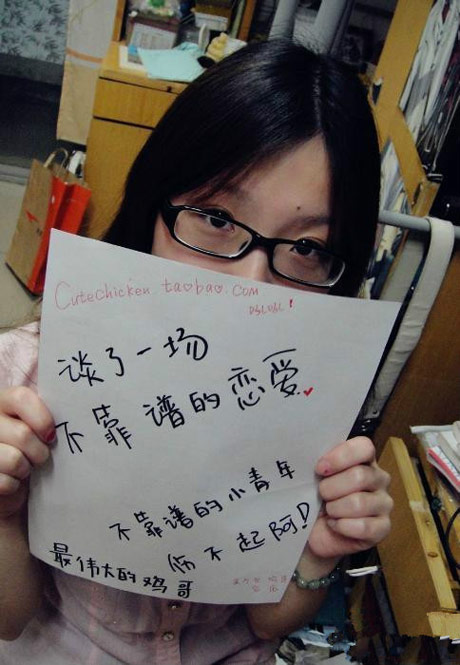 CuteChicken.taobao.com
谈了一场
不靠谱的恋爱
不靠谱的小青年
伤不起阿!
最伟大的鸡哥